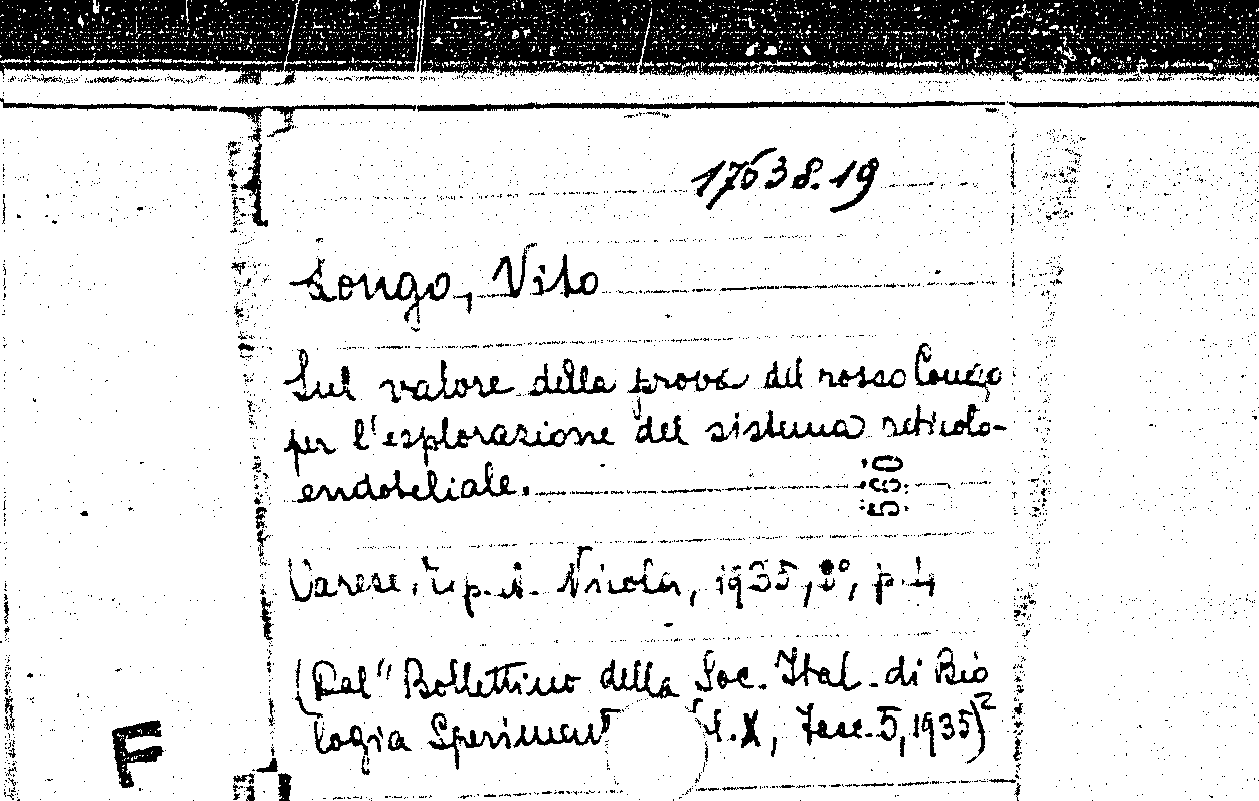 17638.19
Longo, Vito
Sul valore della prova del rosso Congo
per l'esplorazione del sistema reticolo-
endoteliale.
590
Varese, Tip. A. Nicola, 1935, 8°, p. 4
(Dal "Bollettino della Soc. Ital. di Bio
logia Speriment l. X, Fasc. 5, 1935)²
F